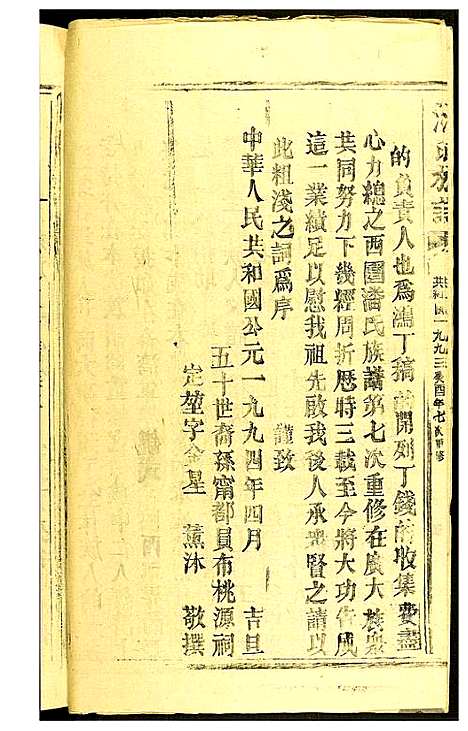 潘氏族譜
一九九三癸酉年七次重修
的負責人也爲鴻丁稿 開列丁錢的收集費盡
心力總之西團潘氏族譜第七次重修在廣大族衆
共同努力下幾經周折歷時三載至今將大功告成
這一業績足以慰我祖先啟我後人承衆賢之請以
此粗淺之詞爲序
謹致
中華人民共和國公元一九九四年四月 吉旦
五十世裔孫甯都員布桃源祠
定堃字金星 薰沐 敬撰